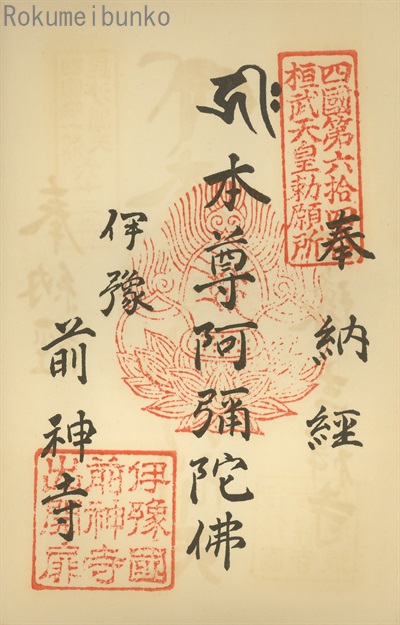 Rokumeibunko
四國第六拾四
桓武天皇勅願所
奉納経
𑖮𑖿𑖨𑖱𑖾
本尊阿彌陀佛
伊豫
前神寺
伊豫國
前神寺